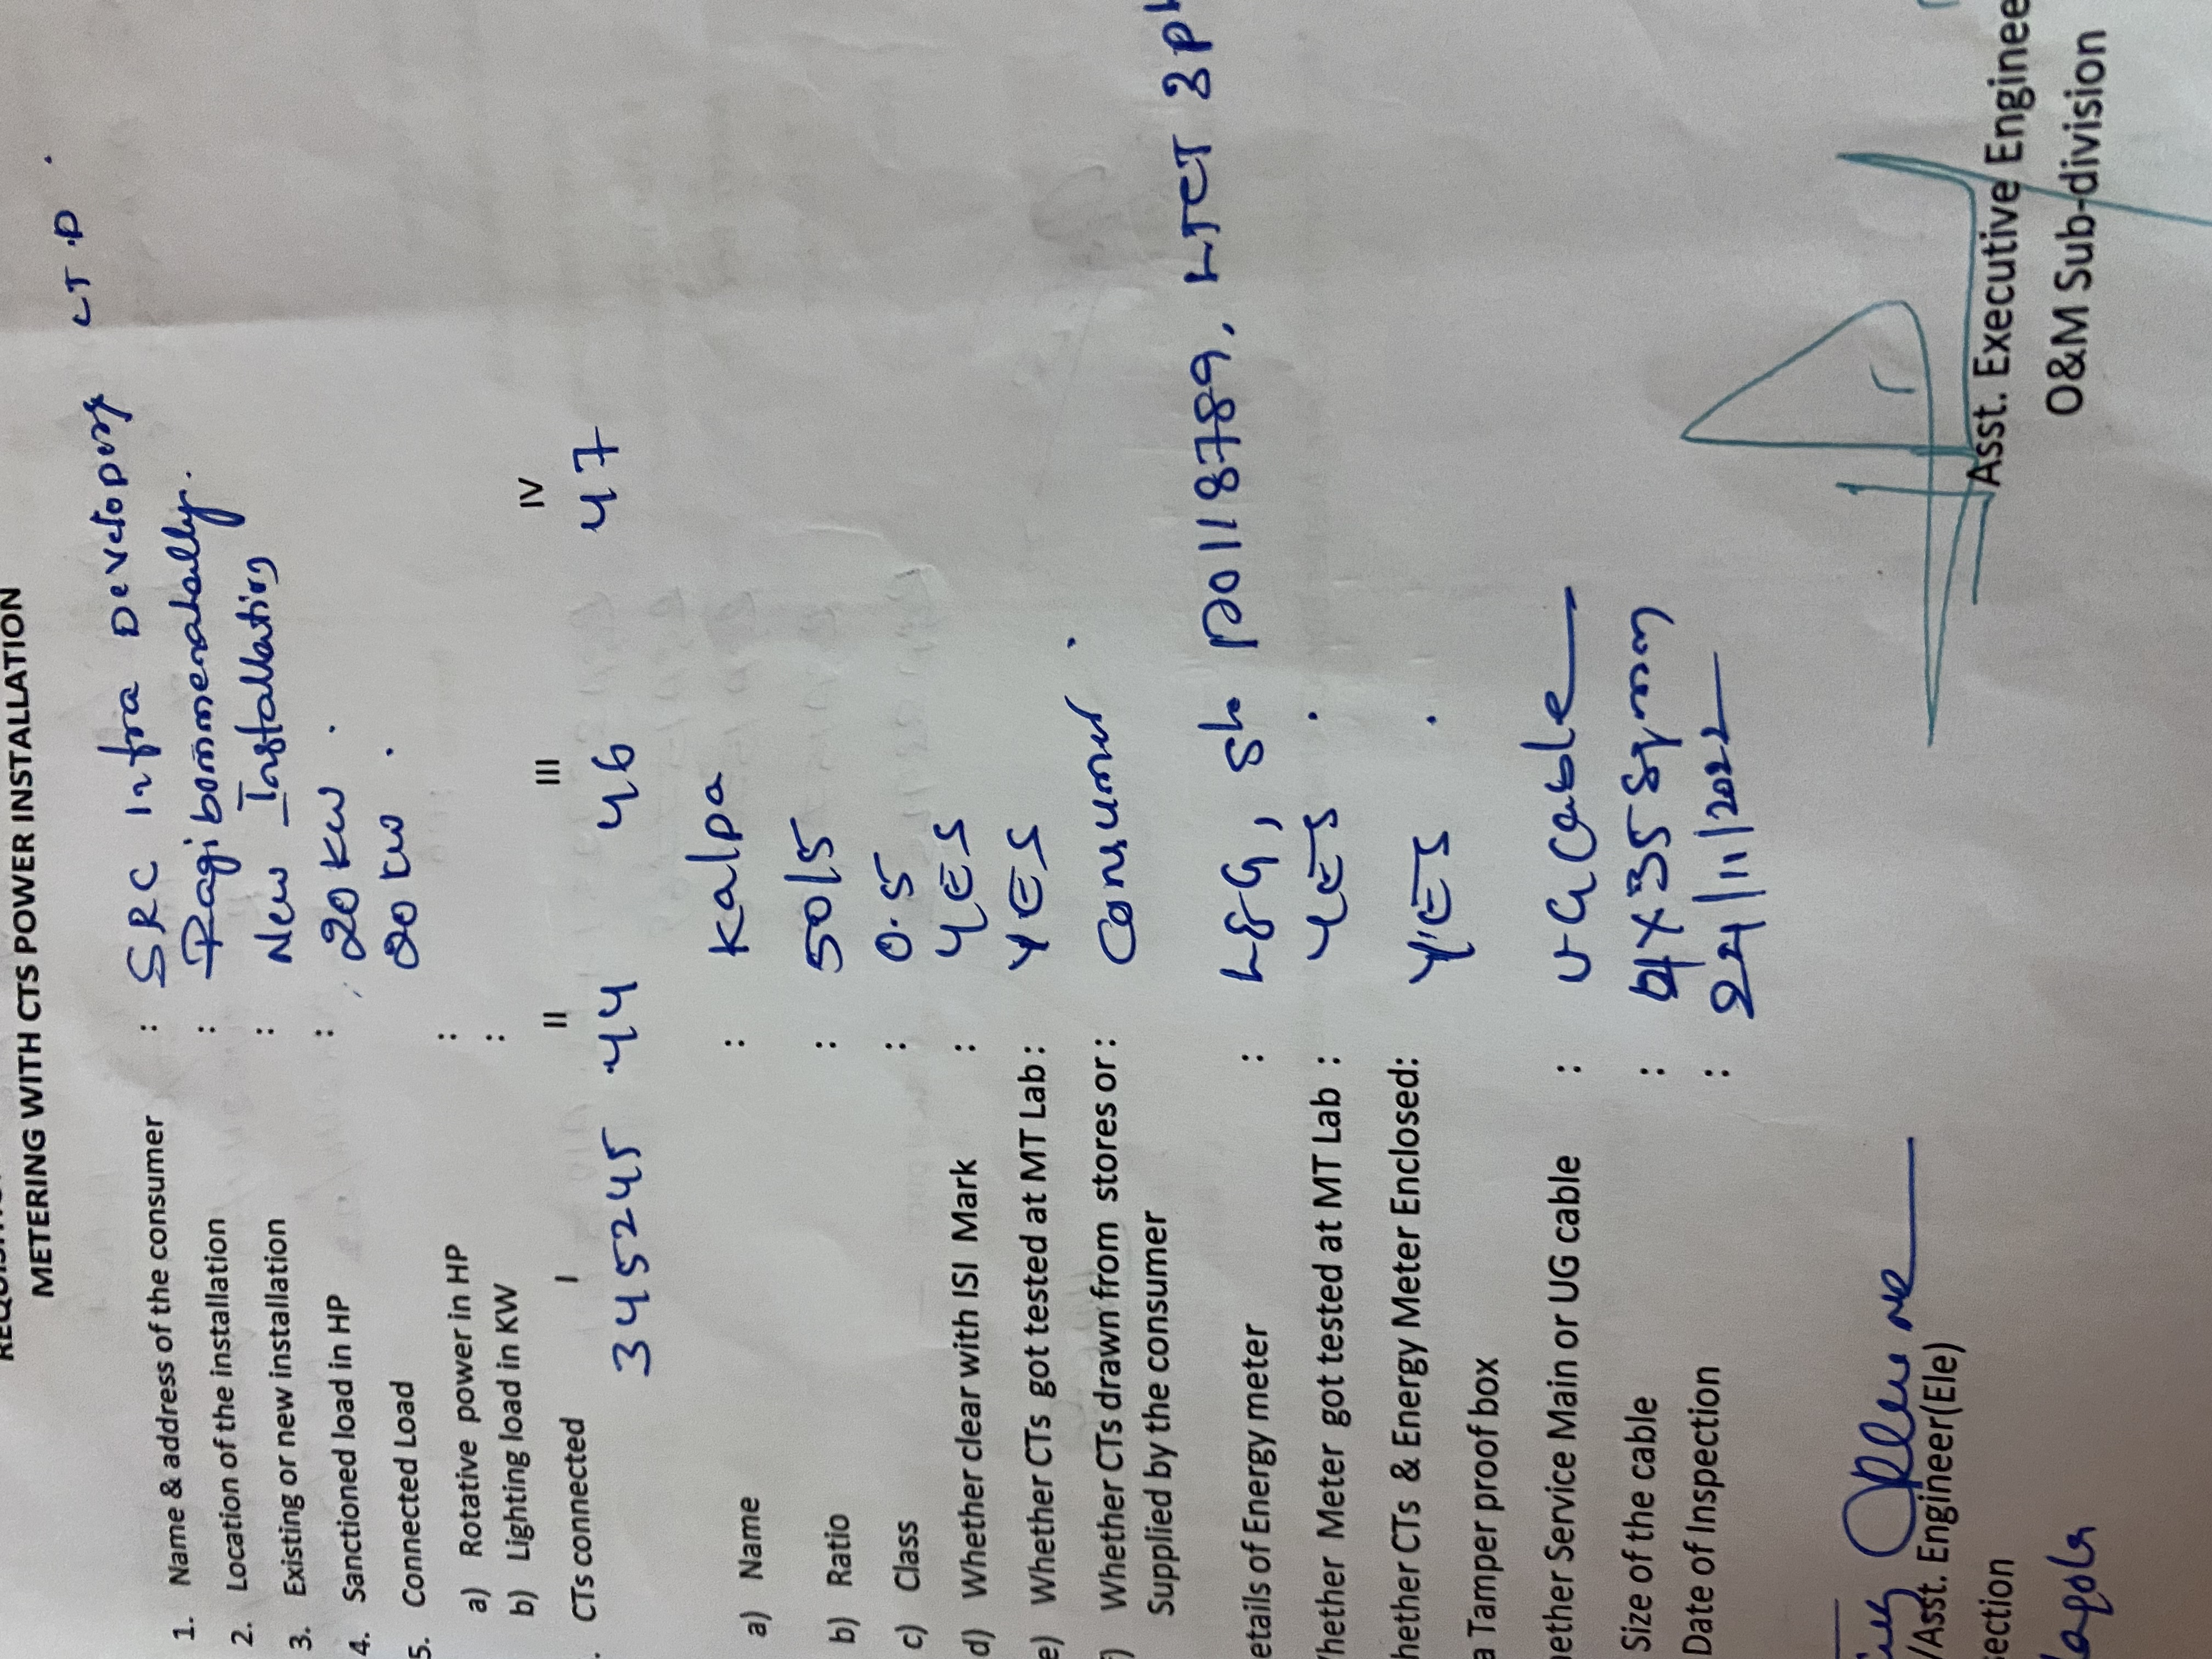 METERING WITH CTS POWER INSTALLATION
1. Name & address of the consumer : SRC Infra Developers LTD.
2. Location of the installation : Ragibommenahally.
3. Existing or new installation : New Installation
4. Sanctioned load in HP : 20 KW.
5. Connected Load 20 KW.
a) Rotative power in HP :
b) Lighting load in KW :
I II III IV
. CTs connected
345245 44 46 47
a) Name : Kalpa
b) Ratio : 50/5
c) Class : 0.5
d) Whether clear with ISI Mark : YES
e) Whether CTs got tested at MT Lab : YES
) Whether CTs drawn from stores or : Consumer.
Supplied by the consumer
etails of Energy meter : L&G, Sl P0118789, LTCT 3P
hether Meter got tested at MT Lab : YES.
hether CTs & Energy Meter Enclosed: YES.
a Tamper proof box
ether Service Main or UG cable : UG Cable
Size of the cable : 4X35 Sqmm
Date of Inspection : 24/11/2022
/Asst. Engineer(Ele)
ection
Asst. Executive Enginee
O&M Sub-division